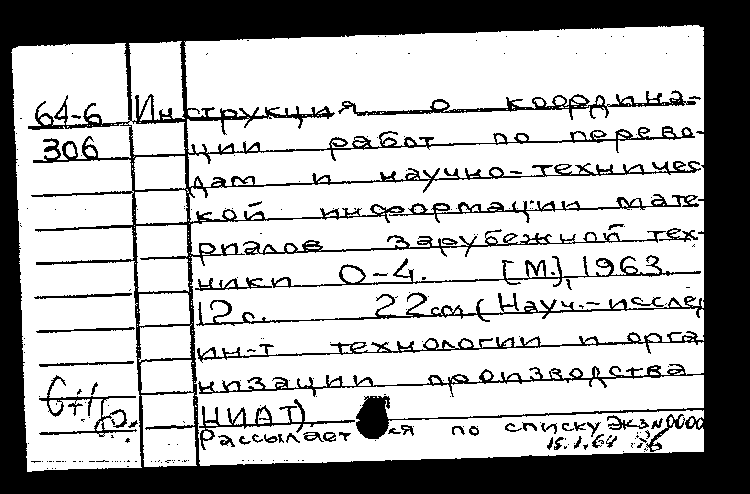 64-6 Инструкция о координа-
306 ции работ по перево-
дам и научно-техничес
кой информации мате-
риалов зарубежной тех-
ники О-4. [М.], 1963.
12 с. 22 см. (Науч.-исслед
ин-т технологии и орга
низации производства
НИАТ).
Рассылается по списку Экз №0000
15.1.64